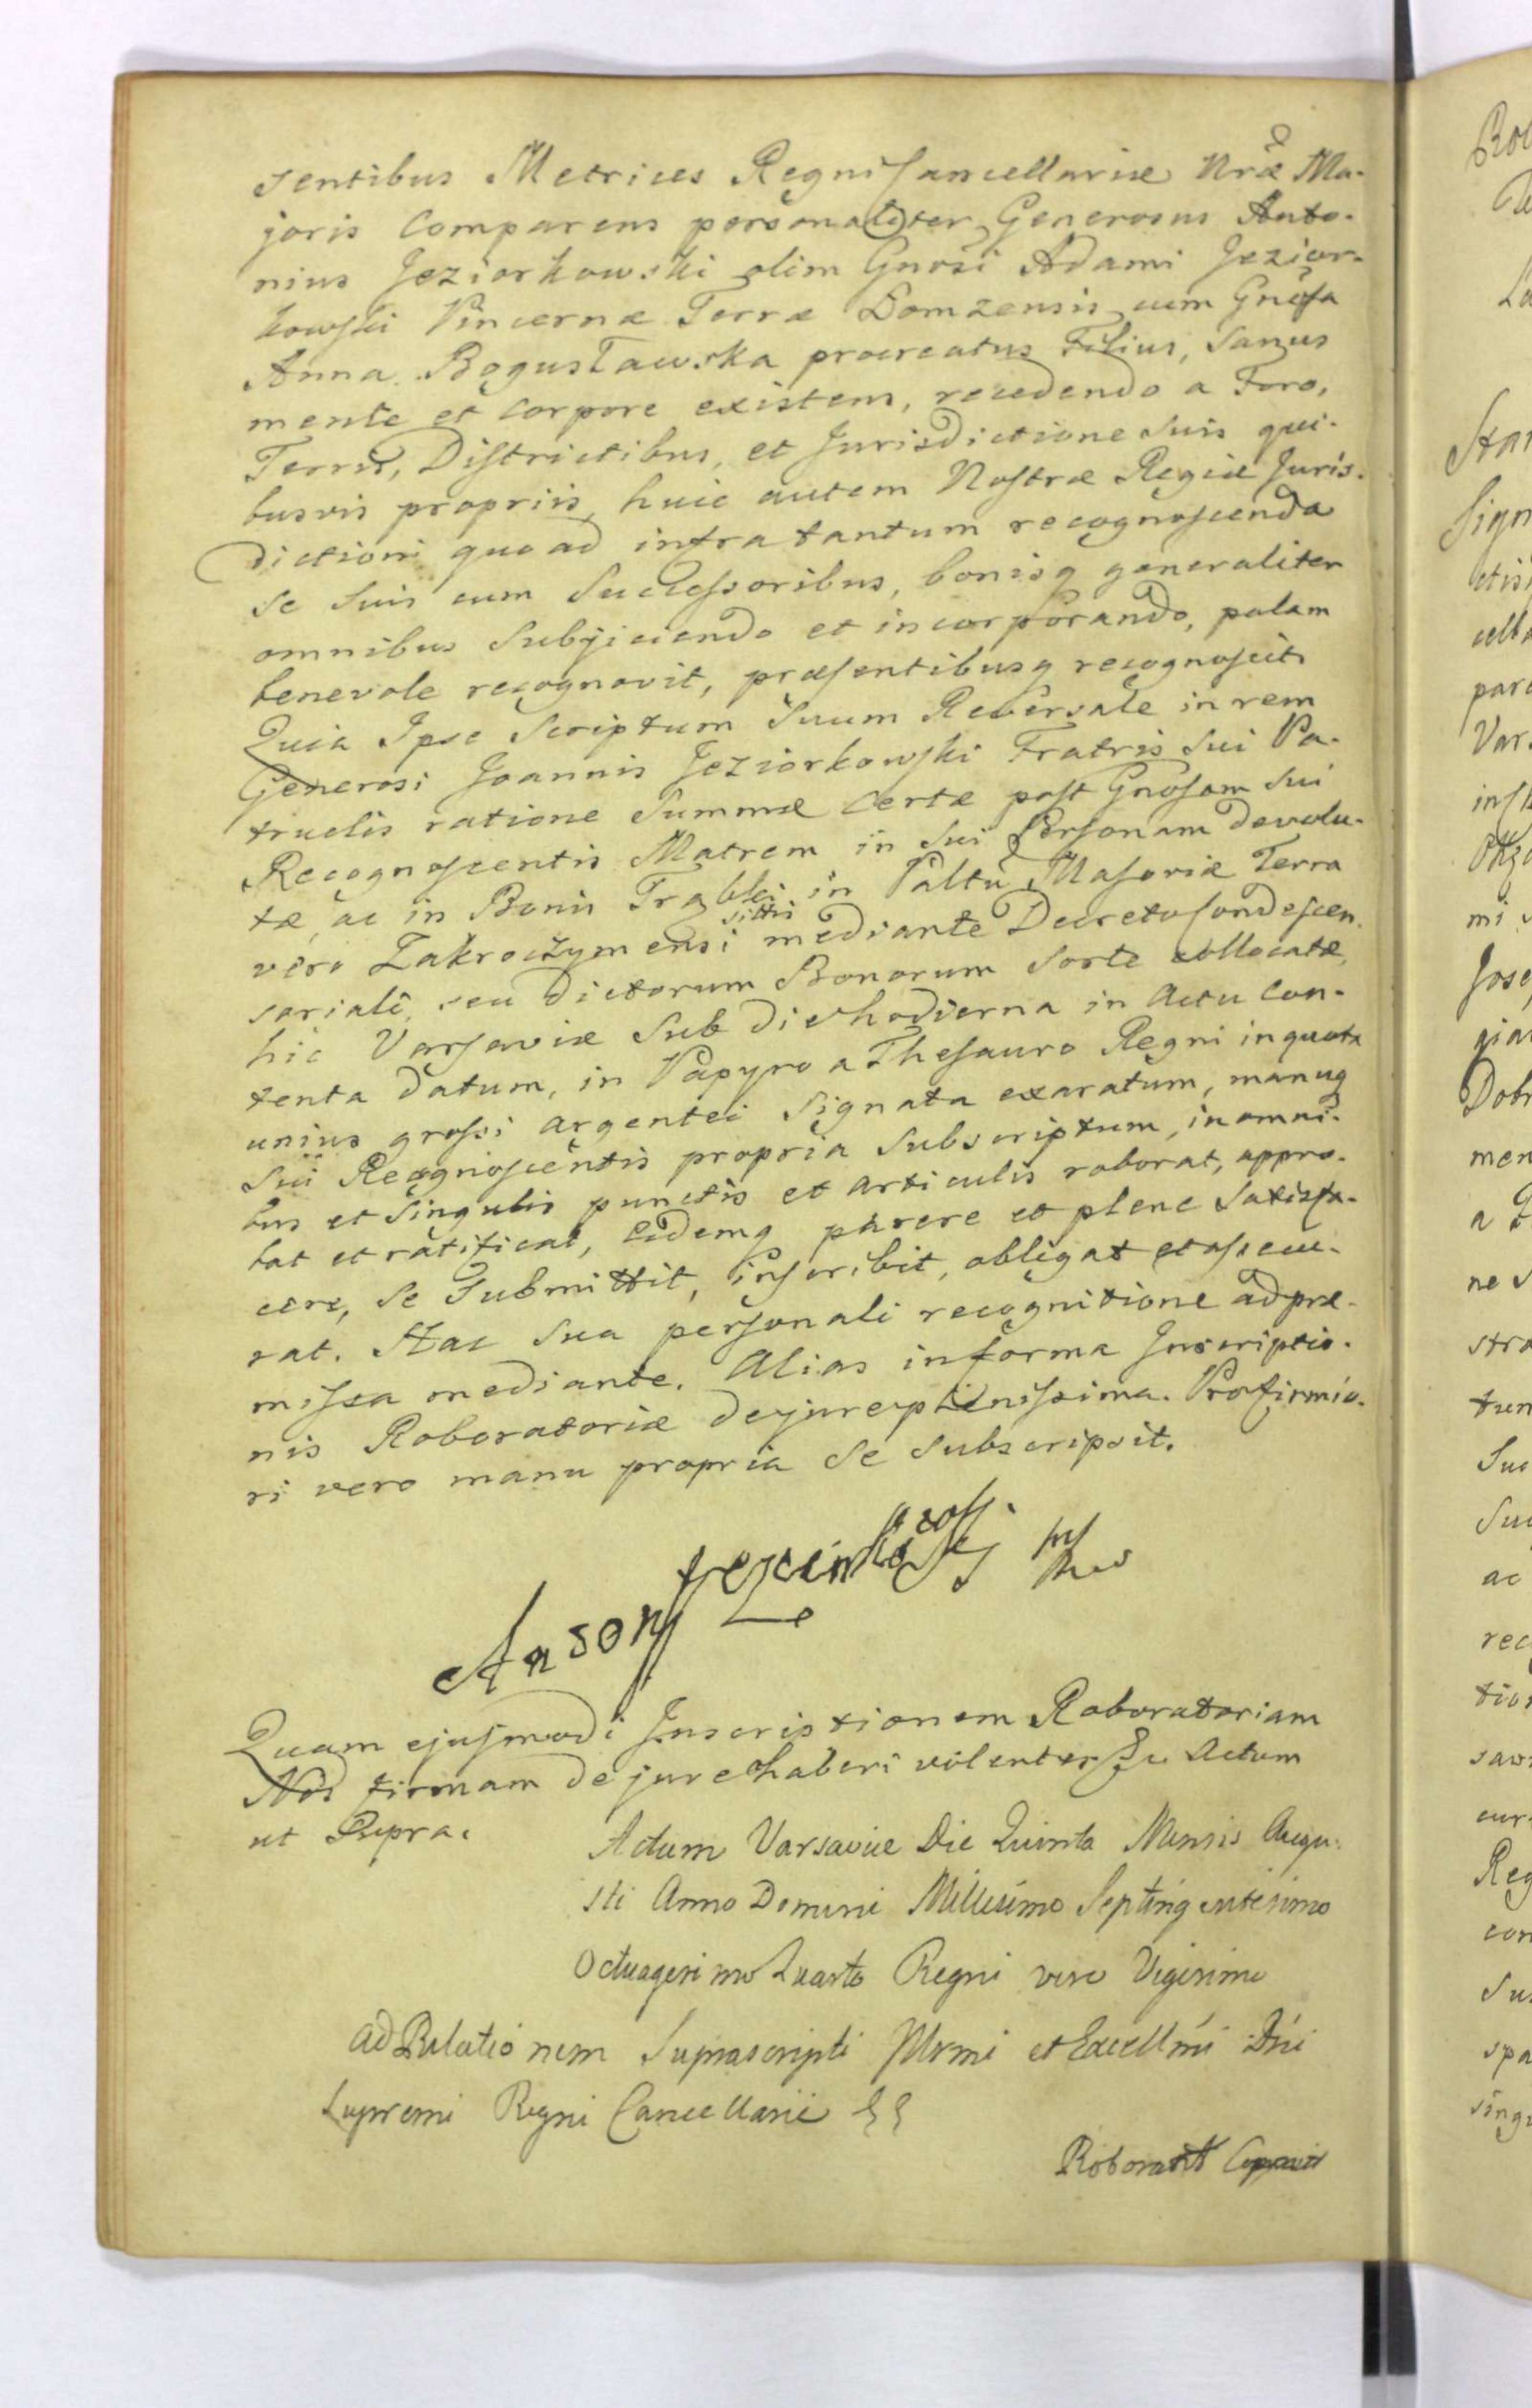 sentibus Metrices Regni Cancellariæ Nræ Ma-
joris Comparens personaliter Generosus Anto-
nius Jeziorkowski olim Gnosi Adami Jezior-
kowski Pincernæ Terræ Lomzensis cum Gnosa
Anna Bogusławska procreatus Filius, Sanus
mente et Corpore existens, recedendo a Foro,
Terris, Districtibus, et Jurisdictione Suis qui-
busvis propriis, huic autem Nostræ Regiæ Juris-
dictioni quoad infra tantum recognoscenda
se Suis cum Successoribus, bonisq generaliter
omnibus Subjiciendo et incorporando, palam
benevole recognovit, præsentibusq recognoscit
Quia Ipse Scriptum Suum Reversale in rem
Generosi Joannis Jeziorkowski Fratris Sui Pa-
truelis ratione Summæ Certæ post Gnosam Sui
Recognoscentis Matrem in Sui Personam devolu-
tæ, ac in Bonis in Paltu Masoviæ Terra
vero Zakroczymensi sittis mediante Decreto Condescen-
soriali, seu dictorum Bonorum Sorte collocatæ,
hic Varsaviæ Sub die hodierna in Actu Con-
tenta datum, in Papyro a Thesauro Regni in quota
unius grossi argentei Signata exaratum, manuq
Sui Recognoscentis propria Subscriptum, in omni-
bus et Singulis punctis et articulis roborat, appro-
bat et ratificat, Eidemq parere et plene Satisfa-
cere, Se Submittit, inscribit, obligat et assecu-
rat. Hac Sua personali recognitione ad præ-
missa mediante. Alias in forma Inscriptio-
nis Roboratoriæ de jure plenissima. Pro firmio-
ri vero manu propria Se Subscripsit.
Antony Jeziorkowski
Quam ejusmodi Inscriptionem Roboratoriam
Nos firmam de jure haberi volentes Actum
ut Supra.
Actum Varsaviæ Die Quinta Mensis Augu-
sti Anno Domini Millesimo Septingentesimo
Octuagesimo Quarto Regni vero Vigesimo
Ad Relationem Suprascripti Illrmi et Excellmi Dni
Supremi Regni Cancellarii